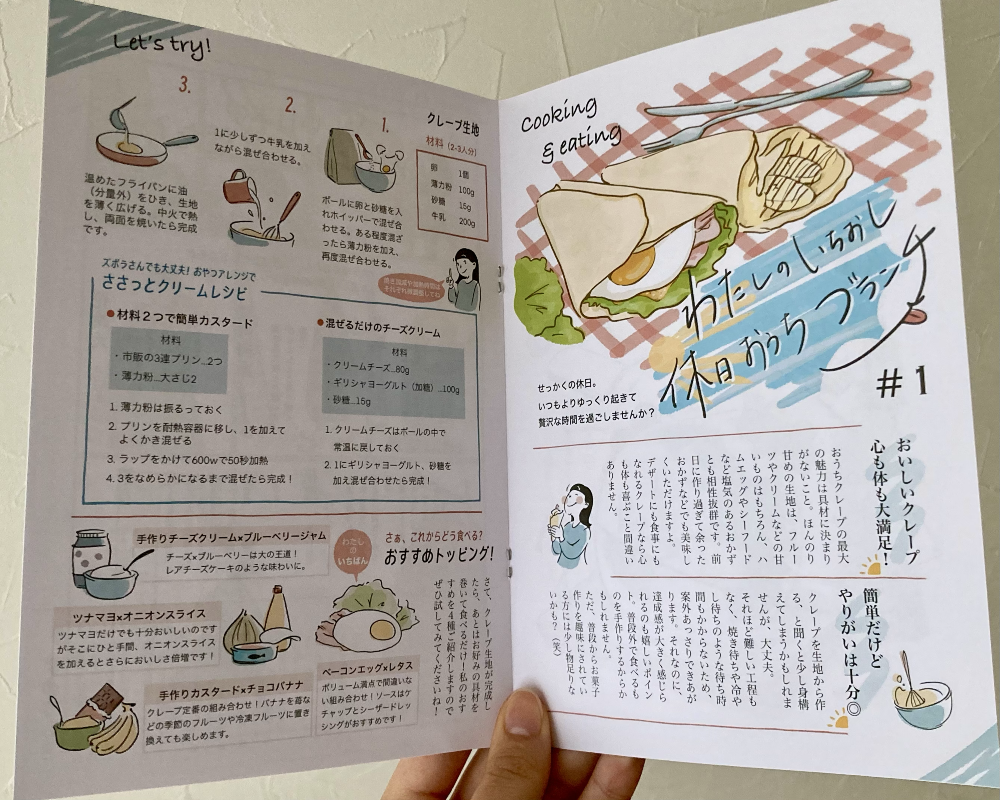 Cooking
& eating
わたしのいちおし
休日おうちブランチ
#1
せっかくの休日。
いつもよりゆっくり起きて
贅沢な時間を過ごしませんか？
おいしいクレープ
心も体も大満足！
おうちクレープの最大
の魅力は具材に決まり
がないこと。ほんのり
甘めの生地は、フルー
ツやクリームなどの甘
いものはもちろん、ハ
ムエッグやシーフード
など塩気のあるおかず
とも相性抜群です。前
日に作り過ぎて余った
おかずなどでも美味し
くいただけますよ。
デザートにも食事にも
なれるクレープなら心
も体も喜ぶこと間違い
ありません。
簡単だけど
やりがいは十分◎
クレープを生地から作
る、と聞くと少し身構
えてしまうかもしれま
せんが、大丈夫。
それほど難しい工程も
なく、焼き待ちや冷や
し待ちのような待ち時
間もかからないため、
案外あっさりできあが
ります。それなのに、
達成感が大きく感じら
れるのも嬉しいポイン
ト。普段外で食べるも
のを手作りするからか
もしれません。
ただ、普段からお菓子
作りを趣味にされてい
る方には少し物足りな
いかも？（笑）
Let's try!
クレープ生地
材料（2-3人分）
卵 1個
薄力粉 100g
砂糖 15g
牛乳 200g
1.
ボールに卵と砂糖を入
れホイッパーで混ぜ合
わせる。ある程度混ざ
ったら薄力粉を加え、
再度混ぜ合わせる。
2.
1に少しずつ牛乳を加え
ながら混ぜ合わせる。
3.
温めたフライパンに油
（分量外）をひき、生地
を薄く広げる。中火で熱
し、両面を焼いたら完成
です。
ズボラさんでも大丈夫！おやつアレンジで
ささっとクリームレシピ
●材料２つで簡単カスタード
材料
・市販の3連プリン…2つ
・薄力粉…大さじ2
1. 薄力粉は振るっておく
2. プリンを耐熱容器に移し、1を加えて
よくかき混ぜる
3. ラップをかけて600wで50秒加熱
4. 3をなめらかになるまで混ぜたら完成！
●混ぜるだけのチーズクリーム
材料
・クリームチーズ…80g
・ギリシャヨーグルト（加糖）…100g
・砂糖…15g
1. クリームチーズはボールの中で
常温に戻しておく
2. 1にギリシャヨーグルト、砂糖を
加え混ぜ合わせたら完成！
さぁ、これからどう食べる？
おすすめトッピング！
さて、クレープ生地が完成し
たら、あとはお好みの具材を
巻いて食べるだけ！私のおす
すめを４種ご紹介しますので
ぜひ試してみてくださいね！
手作りチーズクリーム×ブルーベリージャム
チーズ×ブルーベリーは大の王道！
レアチーズケーキのような味わいに。
わたしの
いちばん
ツナマヨ×オニオンスライス
ツナマヨだけでも十分おいしいのです
がそこにひと手間、オニオンスライス
を加えるとさらにおいしさ倍増です！
ベーコンエッグ×レタス
ボリューム満点で間違いな
い組み合わせ！ソースはケ
チャップとシーザードレッ
シングがおすすめです！
手作りカスタード×チョコバナナ
クレープ定番の組み合わせ！バナナを苺な
どの季節のフルーツや冷凍フルーツに置き
換えても楽しめます。